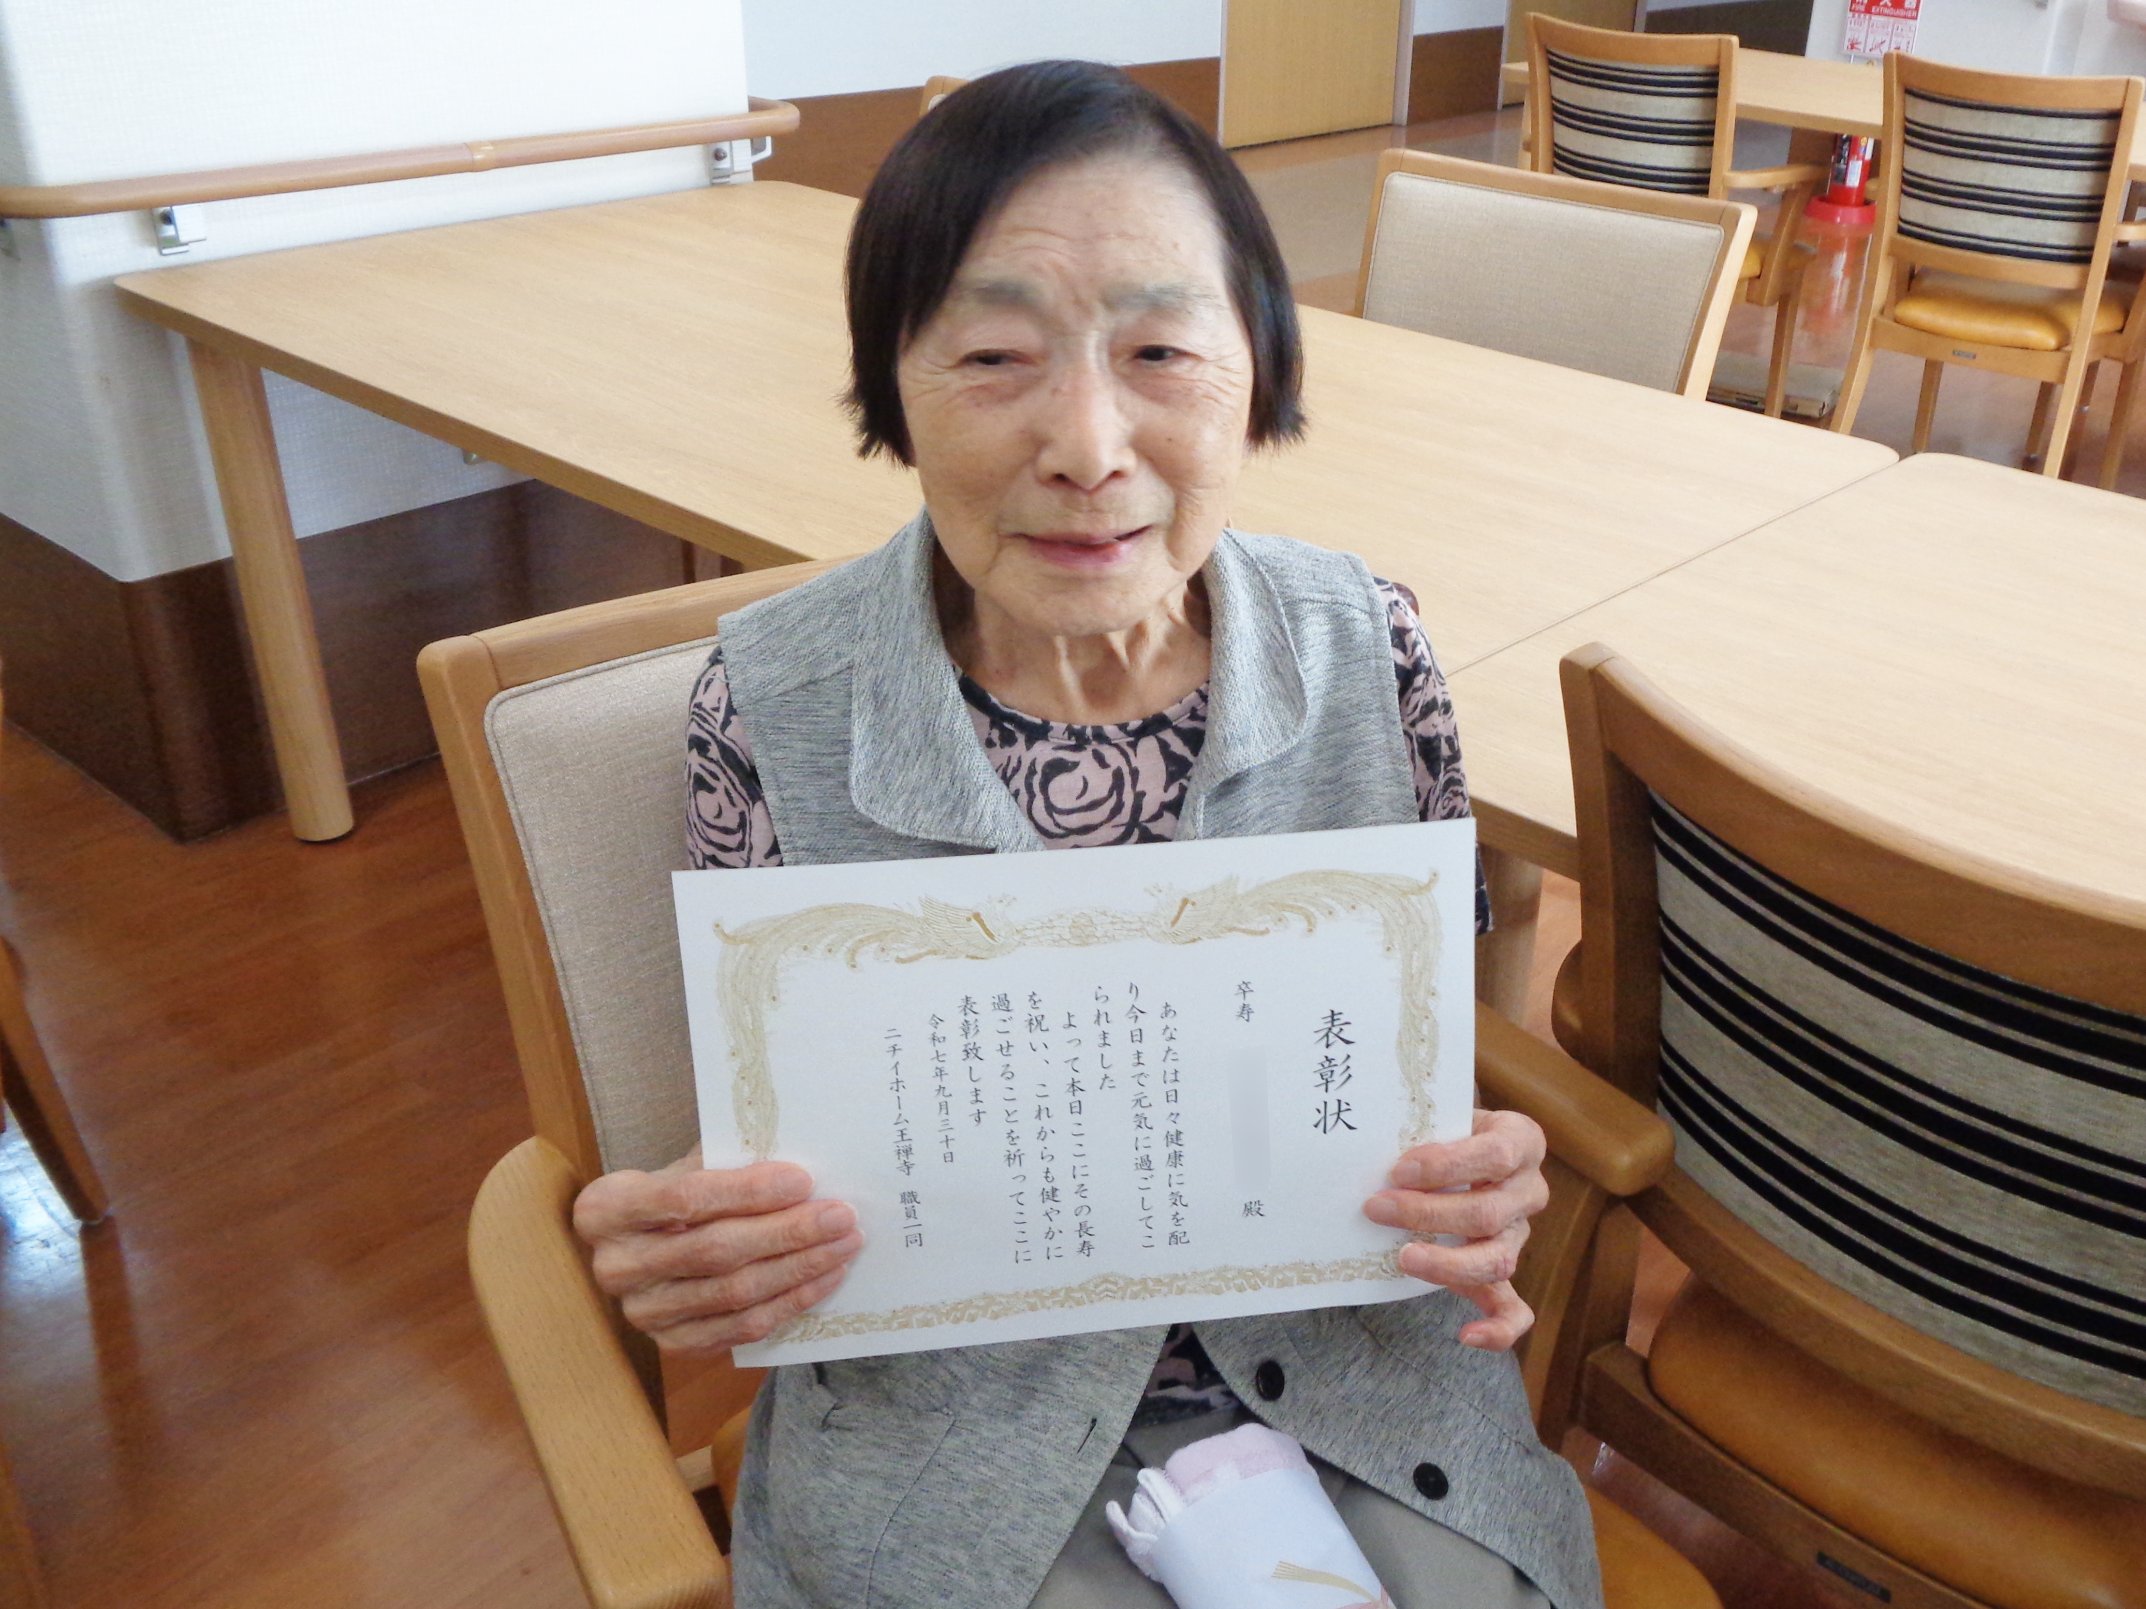 表彰状
卒寿
殿
あなたは日々健康に気を配
り今日まで元気に過ごしてこ
られました
よって本日ここにその長寿
を祝い、これからも健やかに
過ごせることを祈ってここに
表彰致します
令和七年九月三十日
ニチイホーム王禅寺 職員一同
FIRE EXTINGUISHER